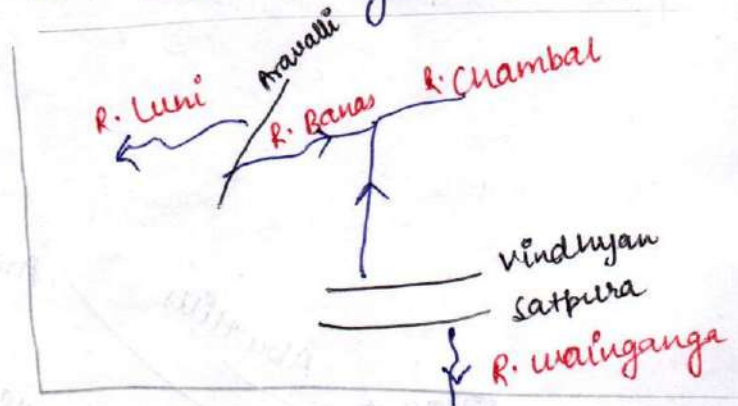 Aravalli
R. Luni
R. Banas
R. Chambal
Vindhyan
Satpura
R. Wainganga